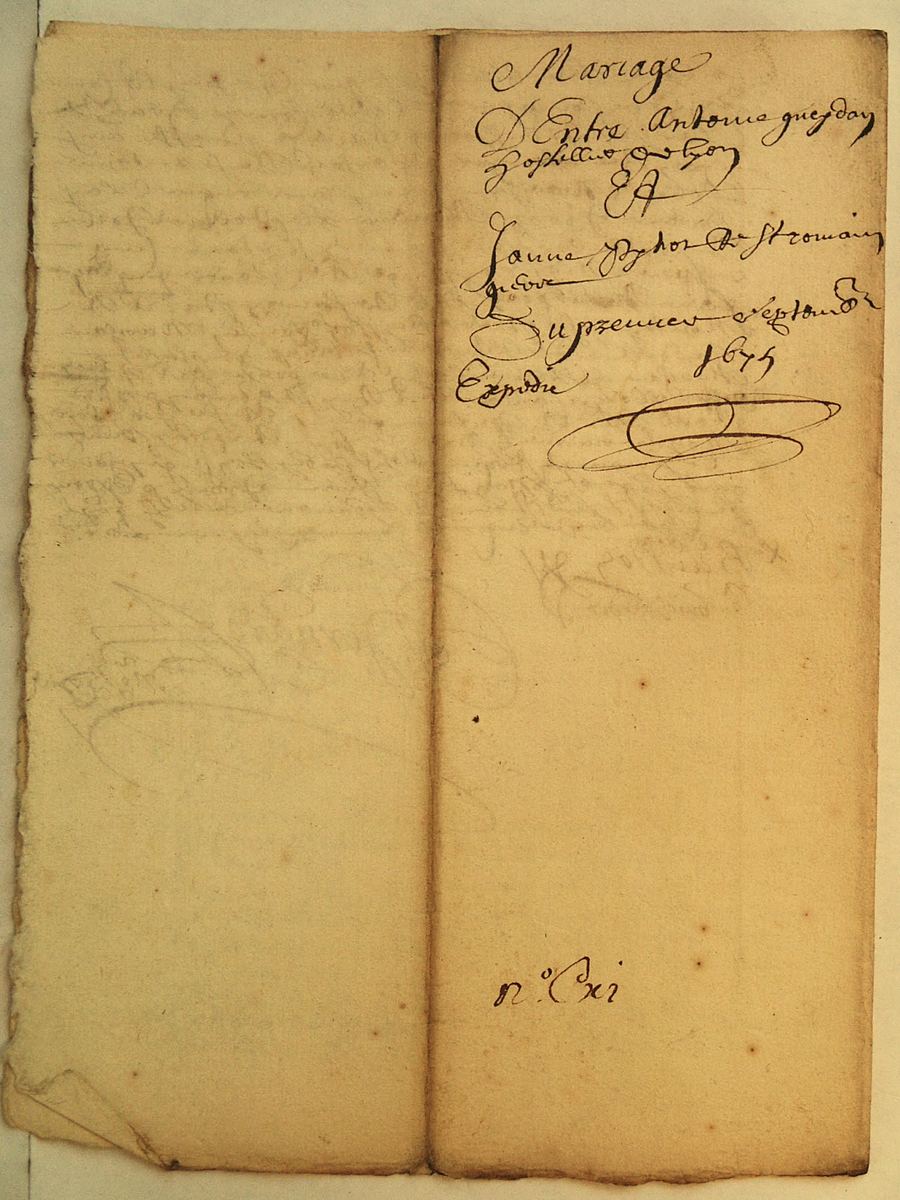 Mariage
D Entre Antoine gueydan
hostellier de lyon
Et
Janne de St romain
Du premier septembr
1675
Expedie
no. Cxi